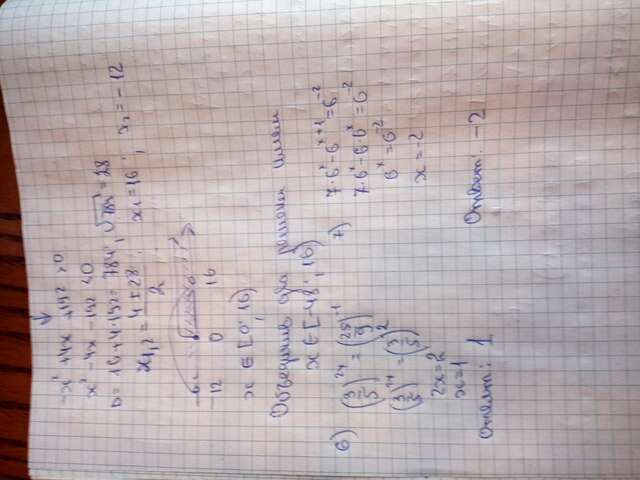 -x² + 4x + 192 > 0
x² - 4x - 192 < 0
D = 16 + 4·192 = 784; √784 = 28
x₁,₂ = (4 ± 28)/2; x₁ = 16; x₂ = -12
12 0 16
x ∈ [0; 16)
Объединив два решения имеем
x ∈ [-48; 16)
6) (3/5)^2x = (25/9)^-1
(3/5)^2x = (3/5)^2
2x = 2
x = 1
Ответ: 1
7) 7·6^x - 6^x+1 = 6^-2
7·6^x - 6·6^x = 6^-2
6^x = 6^-2
x = -2
Ответ: -2